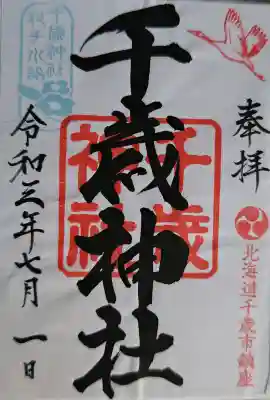 奉拝
北海道千歳市鎮座
千歳神社
千歳神社
令和三年七月一日
千歳神社